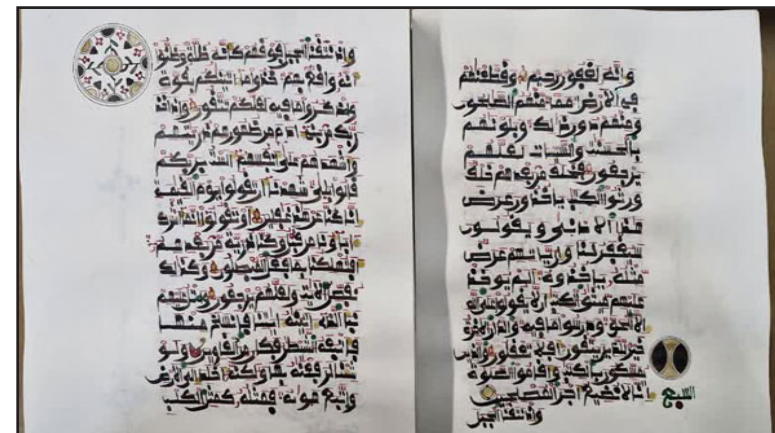 وإنه لغفور رحيم وقطعنهم
في الارض أمما منهم الصلحون
ومنهم دون ذلك وبلونهم
بالحسنت والسيئات لعلهم
يرجعون فخلف من بعدهم خلف
ورثوا الكتب ياخذون عرض
هذا الادنى ويقولون
سيغفر لنا وإن ياتهم عرض
مثله ياخذوه ألم يوخذ
عليهم ميثق الكتب أن لا يقولوا على الله
إلا الحق ودرسوا ما فيه والدار الاخرة
خير للذين يتقون أفلا تعقلون والذين
يمسكون بالكتب وأقاموا الصلوة
إنا لا نضيع أجر المصلحين
السبع
وإذ نتقنا الجبل
وإذ نتقنا الجبل فوقهم كأنه ظلة وظنوا
أنه واقع بهم خذوا ما اتينكم بقوة
واذكروا ما فيه لعلكم تتقون وإذ اخذ
ربك من بني ادم من ظهورهم ذريتهم
وأشهدهم على أنفسهم ألست بربكم
قالوا بلى شهدنا أن تقولوا يوم القيمة
إنا كنا عن هذا غفلين أو تقولوا إنما أشرك
اباؤنا من قبل وكنا ذرية من بعدهم
أفتهلكنا بما فعل المبطلون وكذلك
نفصل الايت ولعلهم يرجعون واتل عليهم
نبأ الذي اتينه ايتنا فانسلخ منها
فأتبعه الشيطن فكان من الغاوين ولو
شئنا لرفعنه بها ولكنه أخلد إلى الارض
واتبع هويه فمثله كمثل الكلب